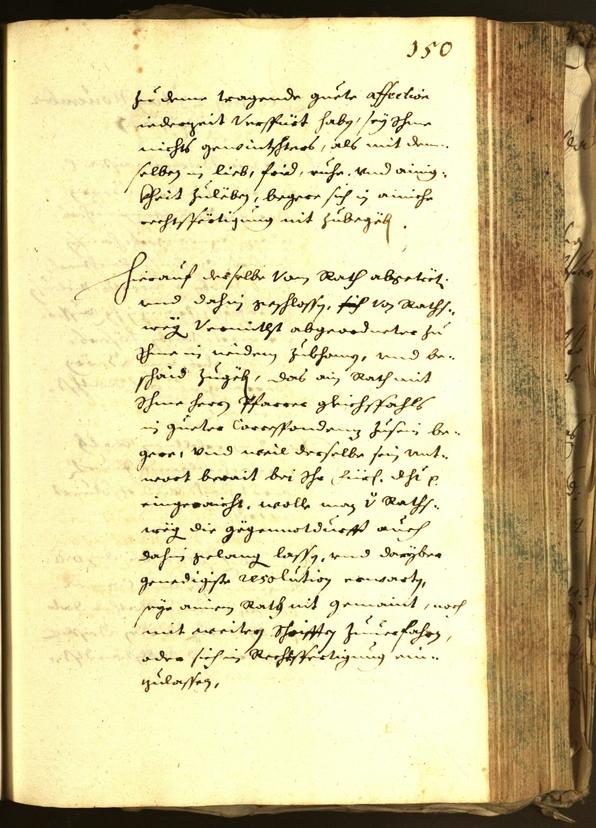 150
zu deme tragende guete affection
iederzeit verspürt haby, sey Ihme
nichts gewüntschters, als mit dem-
selben in lieb, frid, ruhe, vnd ainig-
kheit zuleben, begere sich in ainiche
rechtsfertigung nit zubegeb.
Hierauf derselbe vom Rath abgetret.
vnd dahin geschlossn, von Raths-
weg vermitlst abgeordneter zu
Ihme in widem zukhomn, vnd be-
schaid zugeb, das ain Rath mit
Ihme herrn Pfarrer gleichsfahls
in gueter Correspondenz zusein be-
gere, vnd weil derselbe sein ant-
wort berait bei Ihr fürs. dht p
eingeraicht, wolle man v Raths-
weg die gegennotdurfft auch
dahin gelang lassn, vnd daryber
genedigste resolution erwartn,
seye ainem Rath nit gemaint, noch
mit weitern Schrifftn zuuerfahrn,
oder sich in Rechtsfertigung ein-
zulassen,